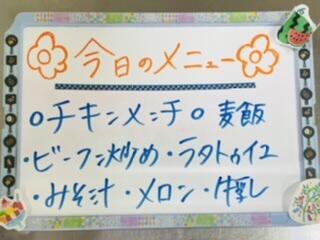 今日のメニュー
○チキンメンチ○ 麦飯
・ビーフン炒め・ラタトゥイユ
・みそ汁・メロン・